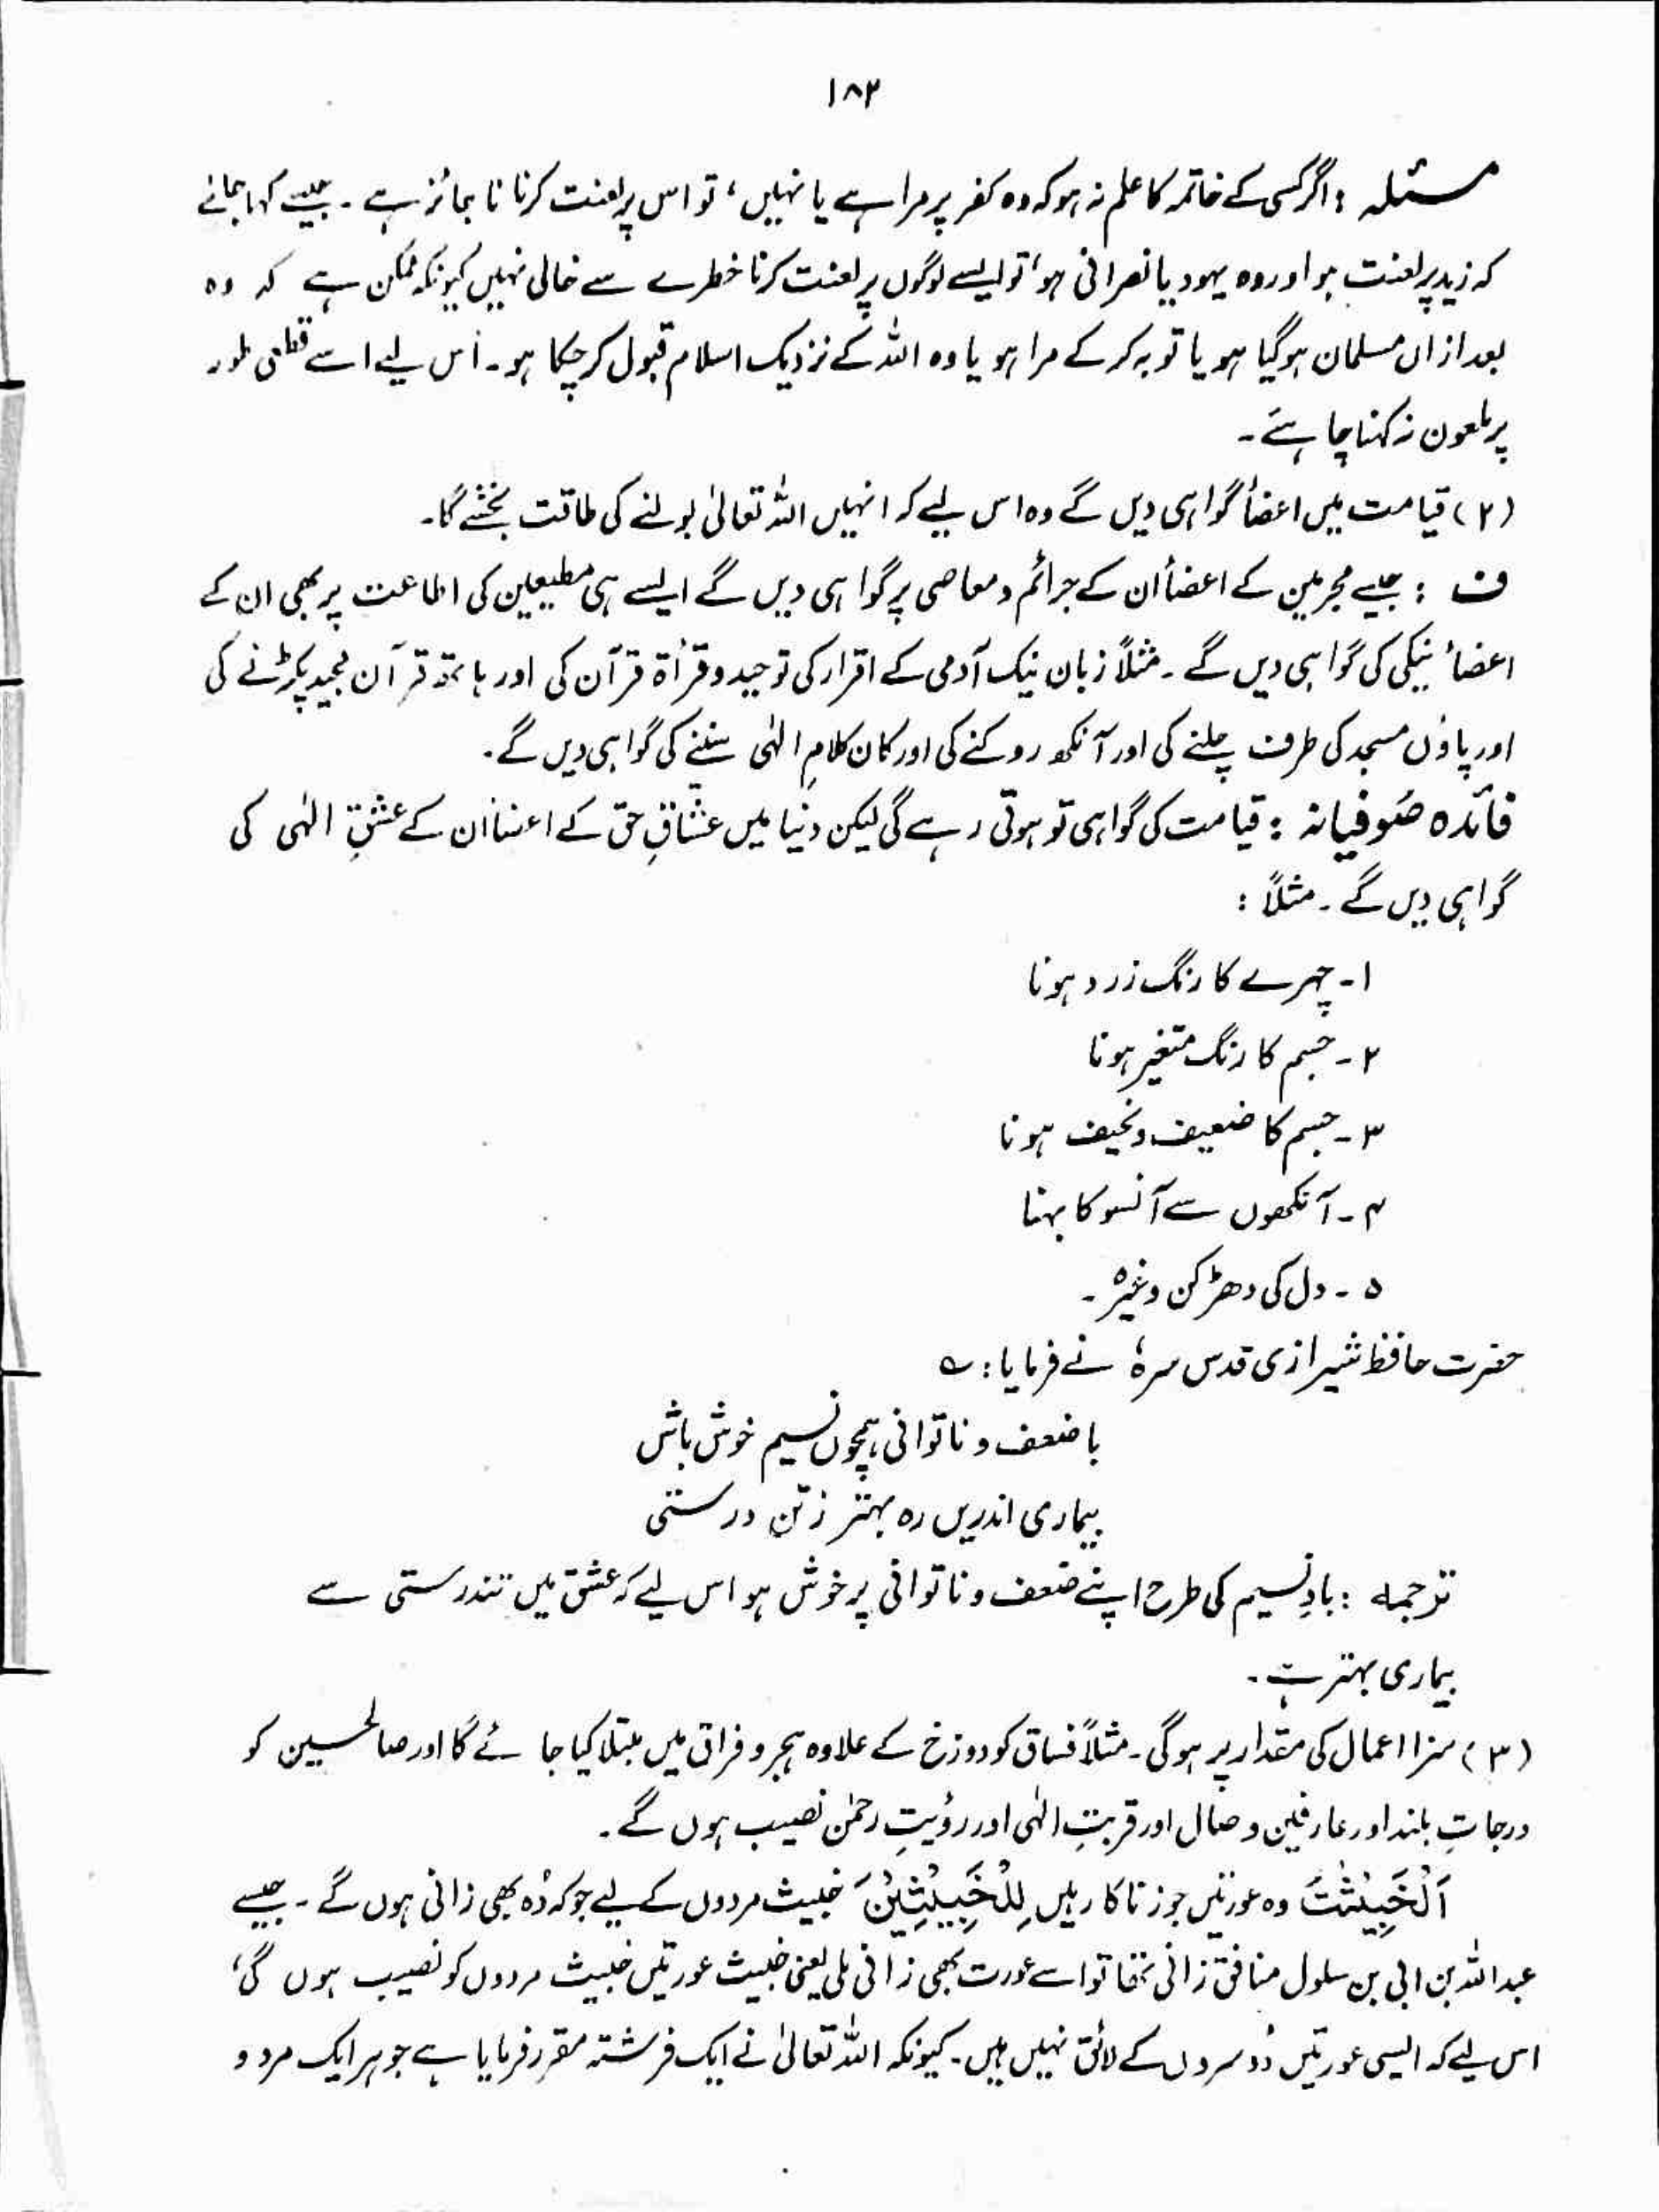 ۱۸۳
مسئلہ : اگر کسی کے خاتمہ کا علم نہ ہو کہ وہ کفر پر مرا ہے یا نہیں، تو اس پر لعنت کرنا ناجائز ہے ۔ جیسے کہا جائے
کہ زید پر لعنت ہو اور وہ یہود یا نصرانی ہو، تو ایسے لوگوں پر لعنت کرنا خطرے سے خالی نہیں کیونکہ ممکن ہے کہ وہ
بعد ازاں مسلمان ہو گیا ہو یا توبہ کر کے مرا ہو یا وہ اللہ کے نزدیک اسلام قبول کر چکا ہو ۔ اس لیے اسے قطعی طور
پر ملعون نہ کہنا چاہئے ۔
(۲) قیامت میں اعضأ گواہی دیں گے وہ اس لیے کہ انہیں اللہ تعالیٰ بولنے کی طاقت بخشے گا۔
ف : جیسے مجرمین کے اعضأ ان کے جرائم و معاصی پر گواہی دیں گے ایسے ہی مطیعین کی اطاعت پر بھی ان کے
اعضأ نیکی کی گواہی دیں گے ۔ مثلاً زبان نیک آدمی کے اقرار کی توحید و قرأة قرآن کی اور ہاتھ قرآن مجید پکڑنے کی
اور پاؤں مسجد کی طرف چلنے کی اور آنکھ روکنے کی اور کان کلامِ الٰہی سننے کی گواہی دیں گے ۔
فائدہ صُوفیانہ : قیامت کی گواہی تو ہوتی رہے گی لیکن دنیا میں عشاقِ حق کے اعضأ ان کے عشقِ الٰہی کی
گواہی دیں گے ۔ مثلاً :
۱۔ چہرے کا رنگ زرد ہونا
۲۔ جسم کا رنگ متغیر ہونا
۳۔ جسم کا ضعیف و نحیف ہونا
۴۔ آنکھوں سے آنسو کا بہنا
۵ ۔ دل کی دھڑکن وغیرہ ۔
حضرت حافظ شیرازی قدس سرہٗ نے فرمایا : ؎
با ضعف و ناتوانی ہمچوں نسیم خوش باش
بیماری اندریں رہ بہتر ز تن درستی
ترجمہ : بادِ نسیم کی طرح اپنے ضعف و ناتوانی پر خوش ہو اس لیے کہ عشق میں تندرستی سے
بیماری بہتر ہے ۔
(۳) سزا اعمال کی مقدار پر ہوگی ۔ مثلاً فساق کو دوزخ کے علاوہ ہجر و فراق میں مبتلا کیا جائے گا اور صالحین کو
درجاتِ بلند اور عارفین وصال اور قربتِ الٰہی اور رؤیتِ رحمٰن نصیب ہوں گے ۔
اَلْخَبِیْثٰتُ وہ عورتیں جو زنا کار ہیں لِلْخَبِیْثِیْنَ خبیث مردوں کے لیے جو کہ وُہ بھی زانی ہوں گے ۔ جیسے
عبداللہ بن ابی بن سلول منافق زانی تھا تو اسے عورت بھی زانی ملی یعنی خبیث عورتیں خبیث مردوں کو نصیب ہوں گی،
اس لیے کہ ایسی عورتیں دُوسروں کے لائق نہیں ہیں ۔ کیونکہ اللہ تعالیٰ نے ایک فرشتہ مقرر فرمایا ہے جو ہر ایک مرد و